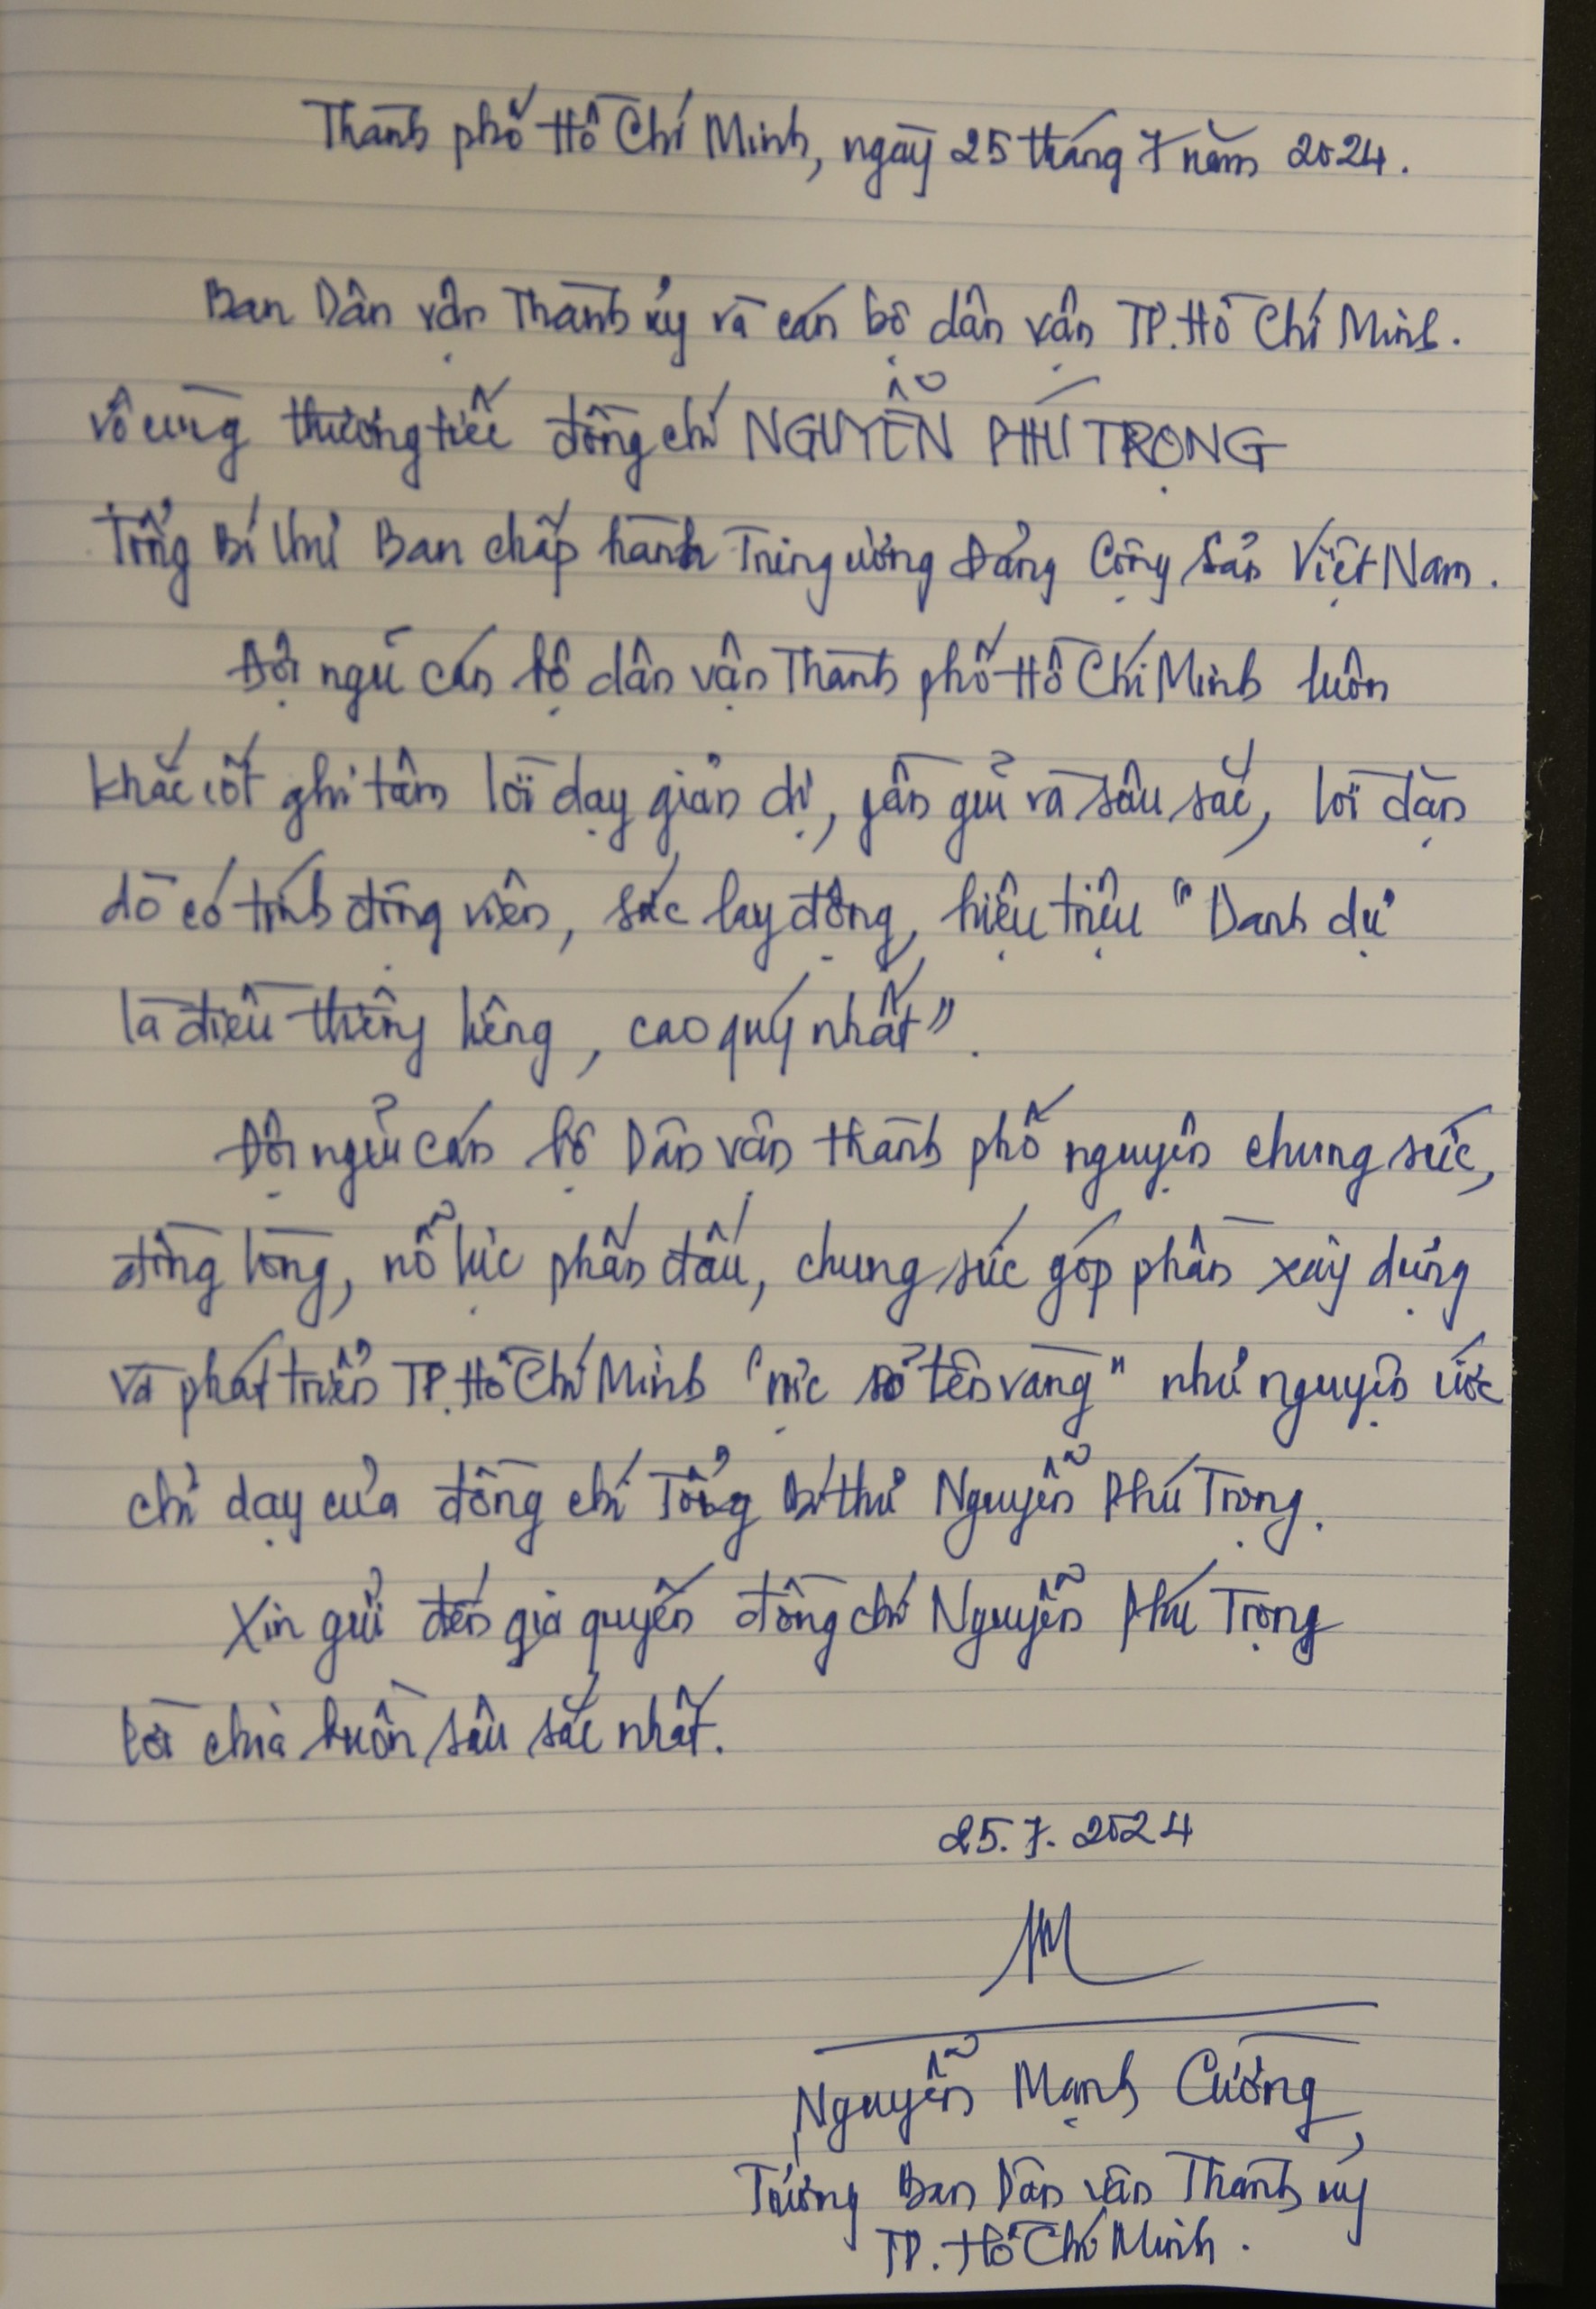 Thành phố Hồ Chí Minh, ngày 25 tháng 7 năm 2024.
Ban Dân vận Thành ủy và cán bộ dân vận TP. Hồ Chí Minh.
vô cùng thương tiếc đồng chí NGUYỄN PHÚ TRỌNG
Tổng Bí thư Ban chấp hành Trung ương Đảng Cộng sản Việt Nam.
Đội ngũ cán bộ dân vận Thành phố Hồ Chí Minh luôn
khắc cốt ghi tâm lời dạy giản dị, gần gũi và sâu sắc, lời dặn
dò có tính động viên, sức lay động, hiệu triệu "Danh dự
là điều thiêng liêng, cao quý nhất".
Đội ngũ cán bộ Dân vận thành phố nguyện chung sức,
đồng lòng, nỗ lực phấn đấu, chung sức góp phần xây dựng
và phát triển TP. Hồ Chí Minh "rực rỡ tên vàng" như nguyện ước
chỉ dạy của đồng chí Tổng Bí thư Nguyễn Phú Trọng.
Xin gửi đến gia quyến đồng chí Nguyễn Phú Trọng
lời chia buồn sâu sắc nhất.
25.7.2024
Nguyễn Mạnh Cường
Trưởng Ban Dân vận Thành ủy
TP. Hồ Chí Minh.